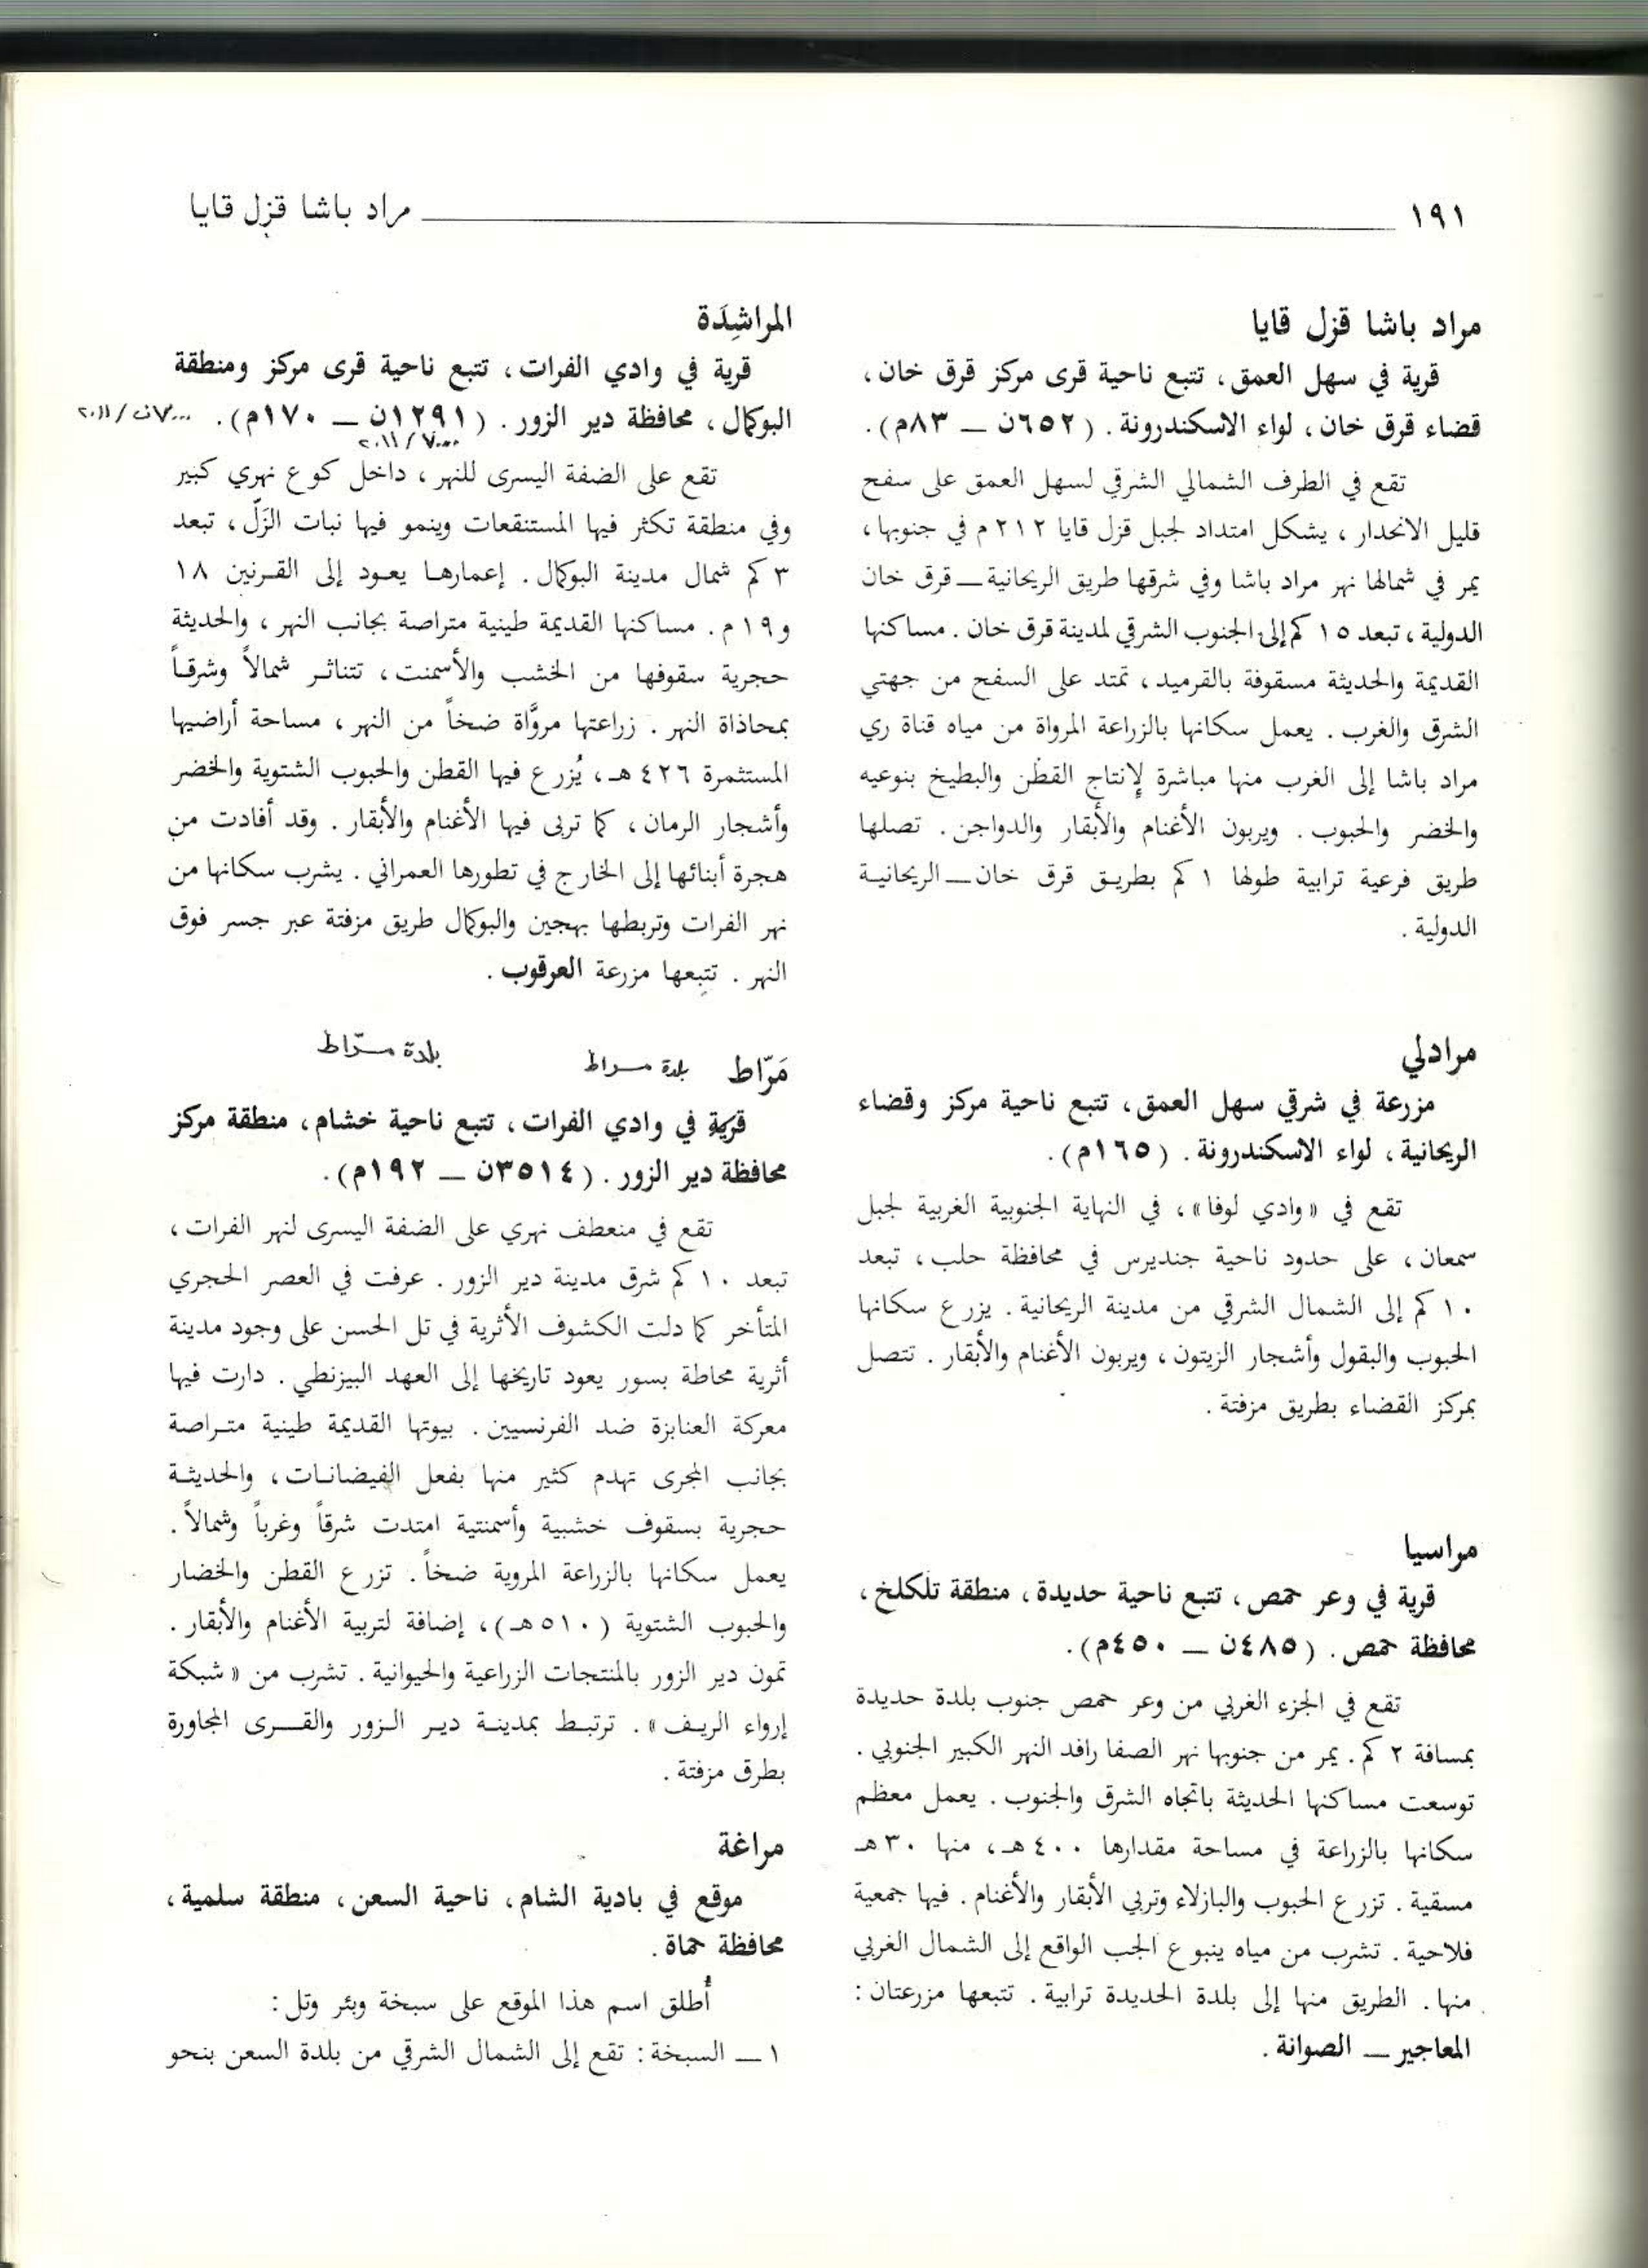 ١٩١ مراد باشا قزل قايا
مراد باشا قزل قايا
قرية في سهل العمق، تتبع ناحية قرى مركز قرق خان،
قضاء قرق خان، لواء الاسكندرونة. (٦٥٢ن ــ ٨٣م).
تقع في الطرف الشمالي الشرقي لسهل العمق على سفح
قليل الانحدار، يشكل امتداد لجبل قزل قايا ٢١٢ م في جنوبها،
يمر في شمالها نهر مراد باشا وفي شرقها طريق الريحانية ــ قرق خان
الدولية، تبعد ١٥ كم إلى الجنوب الشرقي لمدينة قرق خان. مساكنها
القديمة والحديثة مسقوفة بالقرميد، تمتد على السفح من جهتي
الشرق والغرب. يعمل سكانها بالزراعة المرواة من مياه قناة ري
مراد باشا إلى الغرب منها مباشرة لإنتاج القطن والبطيخ بنوعيه
والخضر والحبوب. ويربون الأغنام والأبقار والدواجن. تصلها
طريق فرعية ترابية طولها ١ كم بطريق قرق خان ــ الريحانية
الدولية.
مرادلي
مزرعة في شرقي سهل العمق، تتبع ناحية مركز وقضاء
الريحانية، لواء الاسكندرونة. (١٦٥م).
تقع في «وادي لوفا»، في النهاية الجنوبية الغربية لجبل
سمعان، على حدود ناحية جنديرس في محافظة حلب، تبعد
١٠ كم إلى الشمال الشرقي من مدينة الريحانية. يزرع سكانها
الحبوب والبقول وأشجار الزيتون، ويربون الأغنام والأبقار. تتصل
بمركز القضاء بطريق مزفتة.
مراسيا
قرية في وعر حمص، تتبع ناحية حديدة، منطقة تلكلخ،
محافظة حمص. (٤٨٥ن ــ ٤٥٠م).
تقع في الجزء الغربي من وعر حمص جنوب بلدة حديدة
بمسافة ٢ كم. يمر من جنوبها نهر الصفا رافد النهر الكبير الجنوبي.
توسعت مساكنها الحديثة باتجاه الشرق والجنوب. يعمل معظم
سكانها بالزراعة في مساحة مقدارها ٤٠٠ هـ، منها ٣٠ هـ
مسقية. تزرع الحبوب والبازلاء وتربي الأبقار والأغنام. فيها جمعية
فلاحية. تشرب من مياه ينبوع الجب الواقع إلى الشمال الغربي
منها. الطريق منها إلى بلدة الحديدة ترابية. تتبعها مزرعتان:
المعاجير ــ الصوانة.
المراشِدَة
قرية في وادي الفرات، تتبع ناحية قرى مركز ومنطقة
البوكمال، محافظة دير الزور. (١٢٩١ن ــ ١٧٠م). ٧٠٠٠ن/٢٠١١
٧٠٠٠/٢٠١١
تقع على الضفة اليسرى للنهر، داخل كوع نهري كبير
وفي منطقة تكثر فيها المستنقعات وينمو فيها نبات الزَلّ، تبعد
٣ كم شمال مدينة البوكمال. إعمارها يعود إلى القرنين ١٨
و١٩ م. مساكنها القديمة طينية متراصة بجانب النهر، والحديثة
حجرية سقوفها من الخشب والأسمنت، تتناثر شمالاً وشرقاً
بمحاذاة النهر. زراعتها مروَّاة ضخاً من النهر، مساحة أراضيها
المستثمرة ٤٢٦ هـ، يُزرع فيها القطن والحبوب الشتوية والخضر
وأشجار الرمان، كما تربى فيها الأغنام والأبقار. وقد أفادت من
هجرة أبنائها إلى الخارج في تطورها العمراني. يشرب سكانها من
نهر الفرات وتربطها بهجين والبوكمال طريق مزفتة عبر جسر فوق
النهر. تتبعها مزرعة العرقوب.
مَرّاط بلدة مراط بلدة مرّاط
قرية في وادي الفرات، تتبع ناحية خشام، منطقة مركز
محافظة دير الزور. (٣٥١٤ن ــ ١٩٢م).
تقع في منعطف نهري على الضفة اليسرى لنهر الفرات،
تبعد ١٠ كم شرق مدينة دير الزور. عرفت في العصر الحجري
المتأخر كما دلت الكشوف الأثرية في تل الحسن على وجود مدينة
أثرية محاطة بسور يعود تاريخها إلى العهد البيزنطي. دارت فيها
معركة العنابزة ضد الفرنسيين. بيوتها القديمة طينية متراصة
بجانب المجرى تهدم كثير منها بفعل الفيضانات، والحديثة
حجرية بسقوف خشبية وأسمنتية امتدت شرقاً وغرباً وشمالاً.
يعمل سكانها بالزراعة المروية ضخاً. تزرع القطن والخضار
والحبوب الشتوية (٥١٠ هـ)، إضافة لتربية الأغنام والأبقار.
تمون دير الزور بالمنتجات الزراعية والحيوانية. تشرب من «شبكة
إرواء الريف». ترتبط بمدينة دير الزور والقرى المجاورة
بطرق مزفتة.
مراغة
موقع في بادية الشام، ناحية السعن، منطقة سلمية،
محافظة حماة.
أُطلق اسم هذا الموقع على سبخة وبئر وتل:
١ ــ السبخة: تقع إلى الشمال الشرقي من بلدة السعن بنحو